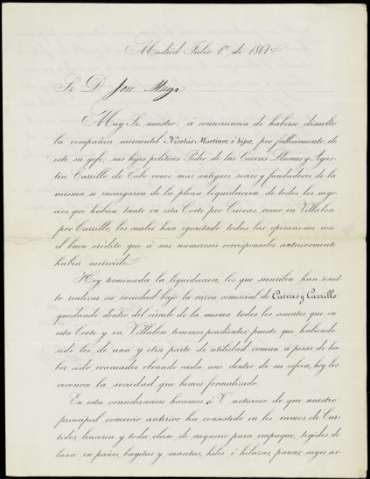 Madrid Julio 1º de 186
Sr. D. José Maga
Muy Sr. nuestro: á consecuencia de haberse disuelto
la compañia mercantil Nicolás Martinez é hijos, por fallecimiento de
este su gefe, sus hijos politicos Pedro de las Cuevas Llamas y Agus-
tin Carrillo de Cabo como mas antiguos socios y fundadores de la
misma se encargaron de la plena liquidacion de todos los nego-
cios que habian tanto en esta Corte por Cuevas, como en Villalon
por Carrillo, los cuales han ejecutado todas las operaciones con
el buen crédito que á sus numerosos corresponsales anteriormente
habia merecido.
Hoy terminada la liquidacion, los que suscriben han resuel-
to realizar su sociedad bajo la razon comercial de Cuevas y Carrillo
quedando dentro del círculo de la misma todos los asuntos que en
esta Corte y en Villalon tenemos pendientes, puesto que habiendo
sido los de una y otra parte de utilidad comun á pesar de ha-
ber sido manejados obrando cada uno dentro de su esfera, hoy los
reconoce la sociedad que hemos formalizado.
En esta consideracion hacemos á V. notorio de que nuestro
principal comercio anterior ha consistido en los ramos de Cur-
tidos, lenceria y toda clase de arperia para empaque, tegidos de
lana en paños, bayetas y mantas, hilos é hilazas, panas, cajas ar-